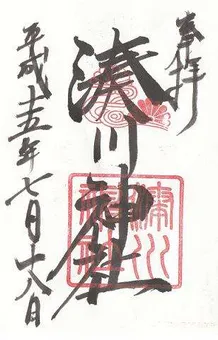 奉拝
湊川神社
平成十五年七月十八日
湊川
神社